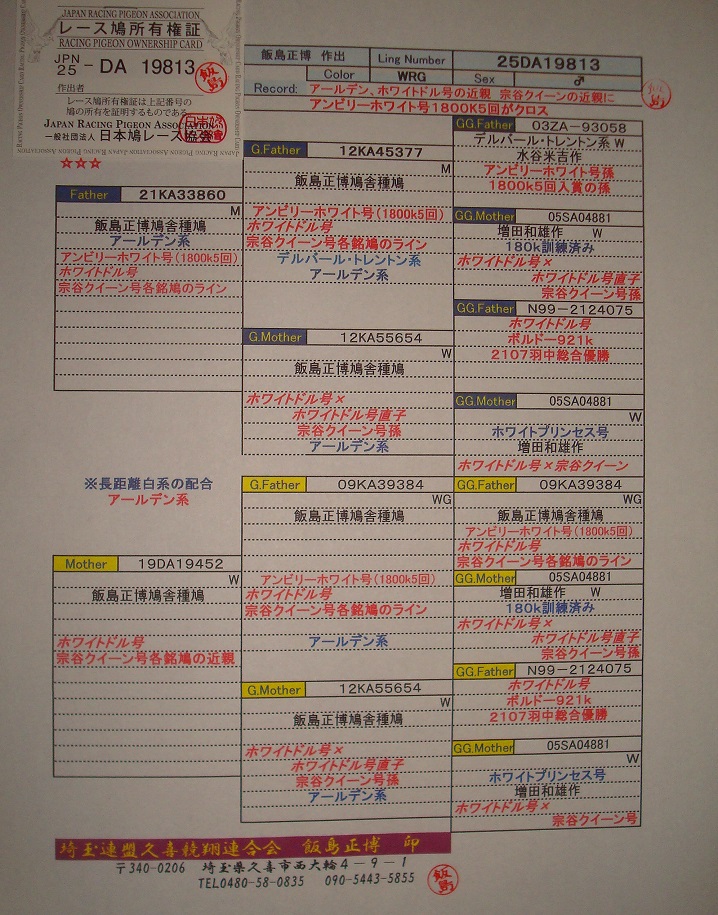 JAPAN RACING PIGEON ASSOCIATION
レース鳩所有権証
RACING PIGEON OWNERSHIP CARD
JPN
25 - DA 19813
飯島
作出者
レース鳩所有権証は上記番号の
鳩の所有を証明するものである
JAPAN RACING PIGEON ASSOCIATION
一般社団法人 日本鳩レース協会
☆☆☆
飯島正博 作出 Ling Number 25DA19813
Color WRG Sex ♂
Record: アールデン、ホワイトドル号の近親 宗谷クイーンの近親に
アンビリーホワイト号1800K5回がクロス
Father 21KA33860
M
飯島正博鳩舎種鳩
アールデン系
アンビリーホワイト号(1800k5回)
ホワイトドル号
宗谷クイーン号各銘鳩のライン
※長距離白系の配合
アールデン系
Mother 19DA19452
W
飯島正博鳩舎種鳩
ホワイトドル号
宗谷クイーン号各銘鳩の近親
G.Father 12KA45377
M
飯島正博鳩舎種鳩
アンビリーホワイト号(1800k5回)
ホワイトドル号
宗谷クイーン号各銘鳩のライン
デルバール・トレントン系
アールデン系
G.Mother 12KA55654
W
飯島正博鳩舎種鳩
ホワイトドル号×
ホワイトドル号直子
宗谷クイーン号孫
アールデン系
G.Father 09KA39384
WG
飯島正博鳩舎種鳩
アンビリーホワイト号(1800k5回)
ホワイトドル号
宗谷クイーン号各銘鳩のライン
アールデン系
G.Mother 12KA55654
W
飯島正博鳩舎種鳩
ホワイトドル号×
ホワイトドル号直子
宗谷クイーン号孫
アールデン系
GG.Father 03ZA-93058
デルバール・トレントン系 W
水谷米吉作
アンビリーホワイト号孫
1800k5回入賞の孫
GG.Mother 05SA04881
増田和雄作 W
180k訓練済み
ホワイトドル号×
ホワイトドル号直子
宗谷クイーン号孫
GG.Father N99-2124075
ホワイトドル号
ボルドー921k
2107羽中総合優勝
GG.Mother 05SA04881
W
ホワイトプリンセス号
増田和雄作
ホワイトドル号×宗谷クイーン
GG.Father 09KA39384
WG
飯島正博鳩舎種鳩
アンビリーホワイト号(1800k5回)
ホワイトドル号
宗谷クイーン号各銘鳩のライン
GG.Mother 05SA04881
増田和雄作 W
180k訓練済み
ホワイトドル号×
ホワイトドル号直子
宗谷クイーン号孫
GG.Father N99-2124075
ホワイトドル号
ボルドー921k
2107羽中総合優勝
GG.Mother 05SA04881
W
ホワイトプリンセス号
増田和雄作
ホワイトドル号×
宗谷クイーン号
埼玉連盟久喜競翔連合会 飯島正博 印
〒340-0206 埼玉県久喜市西大輪4-9-1
TEL0480-58-0835 090-5443-5855
飯島